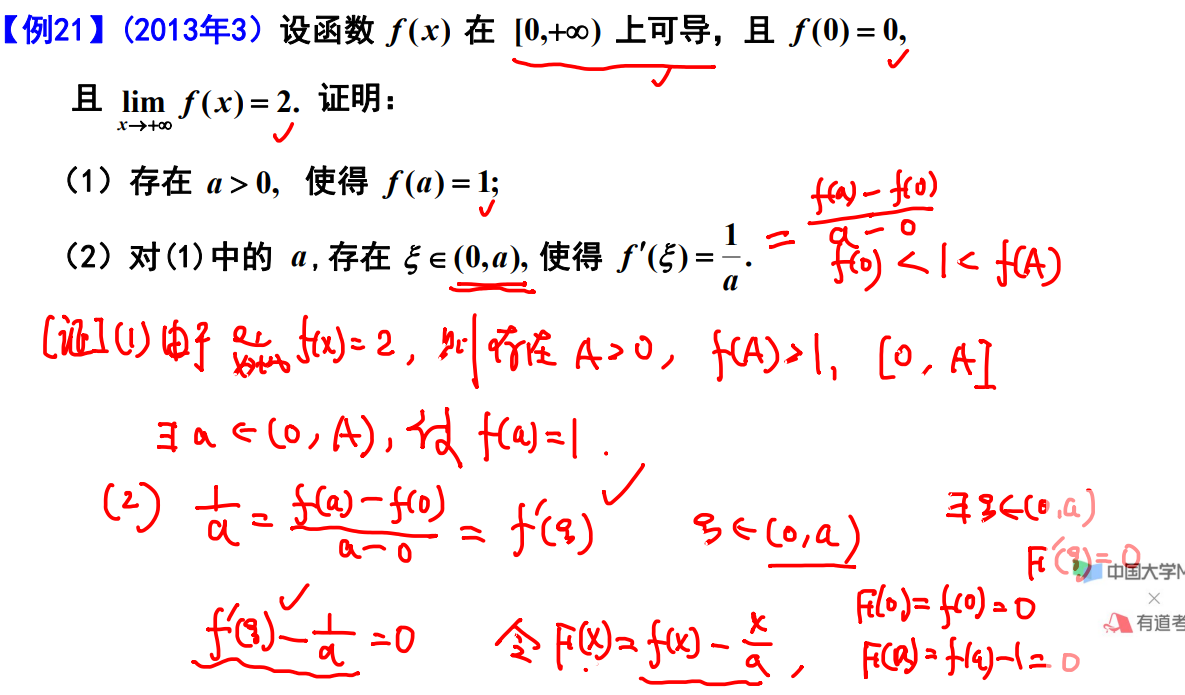 【例21】(2013年3) 设函数 f(x) 在 [0,+∞) 上可导，且 f(0)=0,
且 lim x→+∞ f(x)=2. 证明：
(1) 存在 a>0, 使得 f(a)=1;
(2) 对(1)中的 a,存在 ξ∈(0,a), 使得 f′(ξ)=1/a. = (f(a)-f(0))/(a-0)
f(0)<1<f(A)
[证](1) 由于 lim x→+∞ f(x)=2, 则存在 A>0, f(A)>1, [0, A]
∃ a∈(0, A), 使 f(a)=1.
(2) 1/a = (f(a)-f(0))/(a-0) = f′(ξ) ξ∈(0,a) ∃ξ∈(0,a)
F′(ξ)=0
中国大学M
f′(ξ)-1/a=0 令 F(x)=f(x)-x/a, F(0)=f(0)=0
×
有道考
F(a)=f(a)-1=0